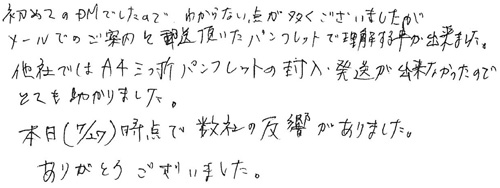 初めてのDMでしたので、わからない点が多くございましたが
メールでのご案内と郵送頂いたパンフレットで理解する事が出来ました。
他社ではA4三つ折パンフレットの封入・発送が出来なかったので
とても助かりました。
本日(7/27)時点で数社の反響がありました。
ありがとうございました。